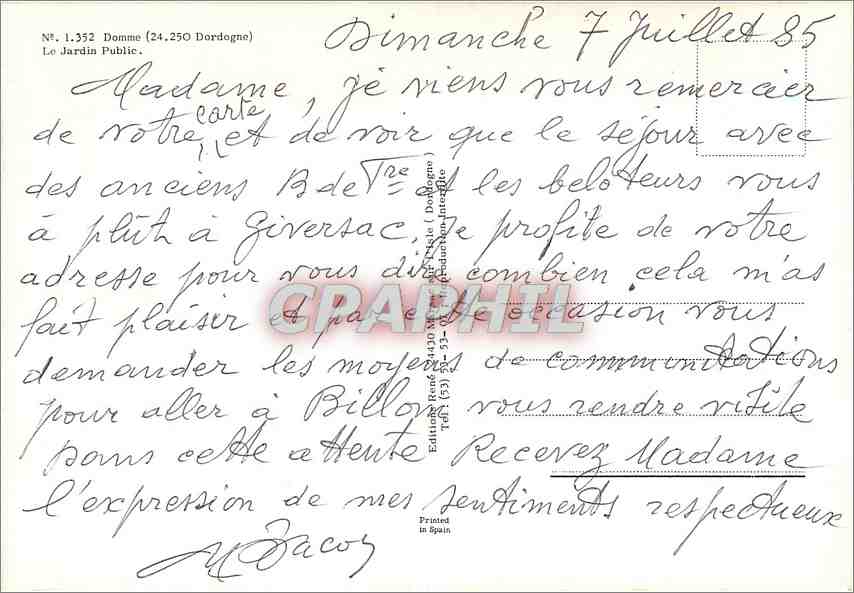 Nº. 1.352 Domme (24.250 Dordogne)
Le Jardin Public.
Dimanche 7 Juillet 85
Madame, je viens vous remercier
carte
de votre, et de voir que le séjour avec
des anciens B de Tre et les beloteurs vous
à plût à Giversac. Je profite de votre
adresse pour vous dire combien cela m'as
fait plaisir et par cette occasion vous
demander les moyens de communitations
pour aller à Billom vous rendre visite
Dans cette attente Recevez Madame
l'expression de mes sentiments respectueux
Editions René 24430 sur l'Isle (Dordogne)
Tél : (53) Reproduction Interdite
Printed
in Spain
CPAPHIL